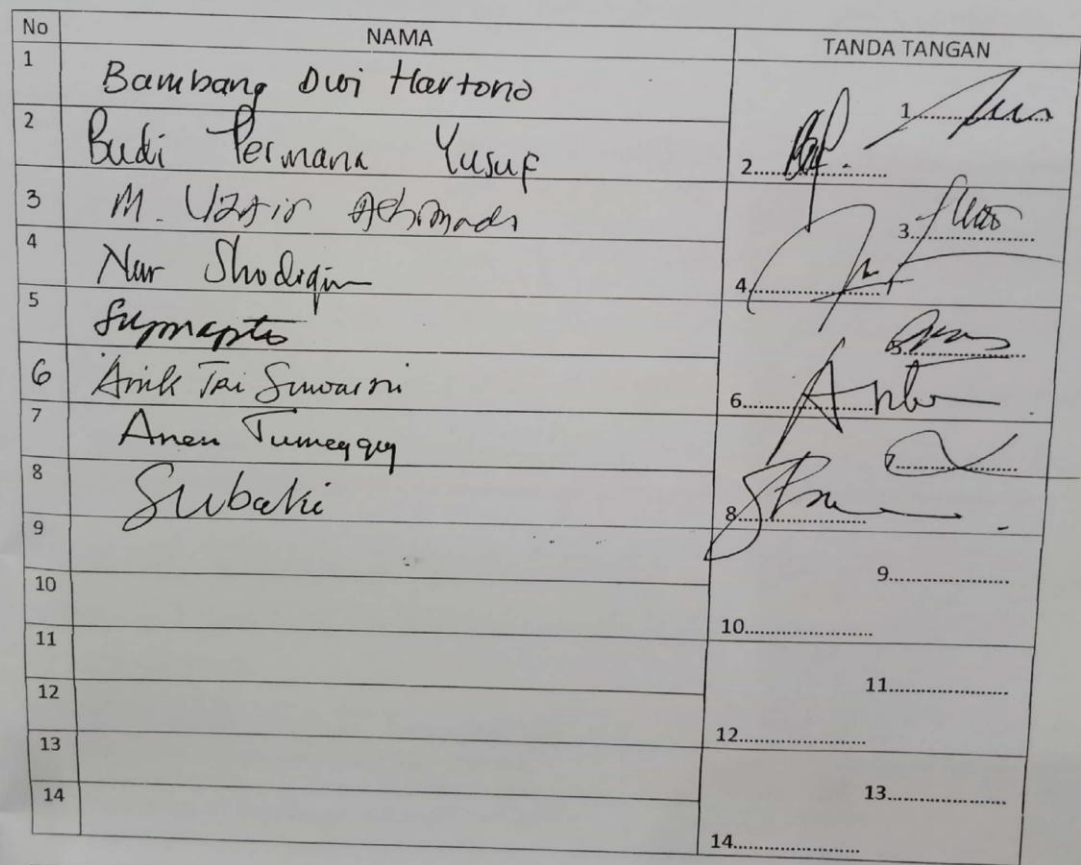 No NAMA TANDA TANGAN
1 Bambang Dwi Hartono 1..................
2 Budi Permana Yusuf 2..................
3 M. Uzair Achmadi 3..................
4 Nur Shodiqin 4..................
5 Suprapto 5..................
6 Anik Tri Suwarni 6..................
7 Anen Tumanggung 7..................
8 Subaki 8..................
9 9..................
10 10..................
11 11..................
12 12..................
13 13..................
14 14..................